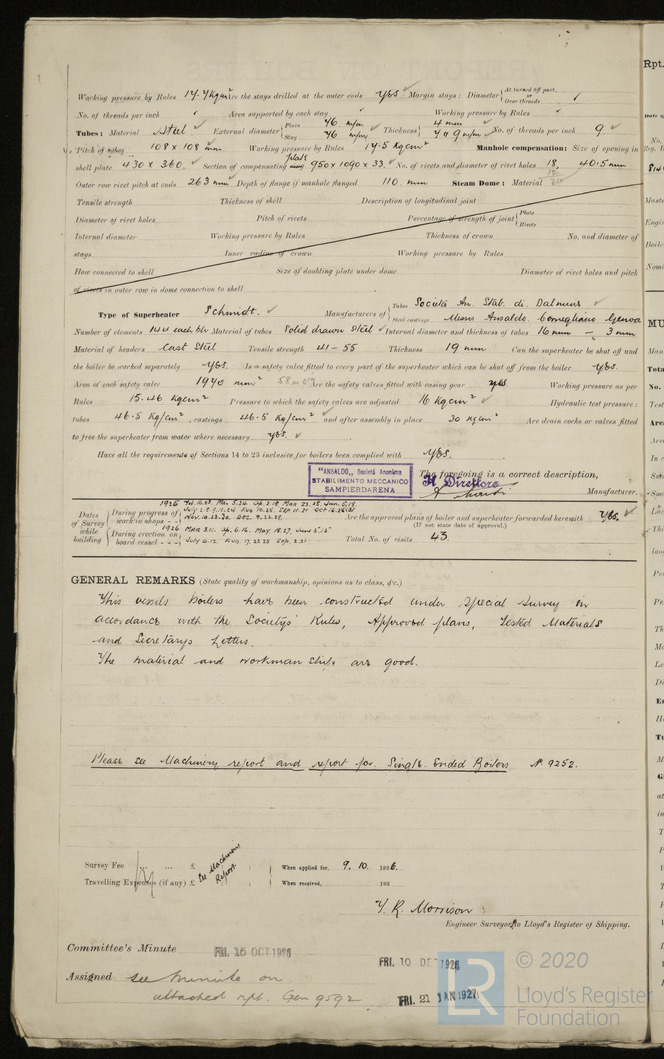 Working pressure by Rules 14.7 Kg/cm² Are the stays drilled at the outer ends yes Margin stays: Diameter { At turned off part, or Over threads
No. of threads per inch Area supported by each stay Working pressure by Rules
Tubes: Material Steel External diameter { Plain 76 m/m Stay 76 m/m Thickness { 4 mm 7 & 9 m/m No. of threads per inch 9
Pitch of tubes 108 x 108 mm Working pressure by Rules 14.5 Kg/cm² Manhole compensation: Size of opening in
shell plate 430 x 360. Section of compensating ring plate 950 x 1090 x 33. No. of rivets and diameter of rivet holes 18, 40.5 mm
Outer row rivet pitch at ends 263 mm Depth of flange if manhole flanged 110. mm Steam Dome: Material
Tensile strength Thickness of shell Description of longitudinal joint
Diameter of rivet holes Pitch of rivets Percentage of strength of joint { Plate Rivets
Internal diameter Working pressure by Rules Thickness of crown No. and diameter of
stays Inner radius of crown Working pressure by Rules
How connected to shell Size of doubling plate under dome Diameter of rivet holes and pitch
of rivets in outer row in dome connection to shell
Type of Superheater Schmidt. Manufacturers of { Tubes Società An. Stab. di Dalmine Steel castings Messrs Ansaldo. Cornegliano Genova
Number of elements 144 each blr Material of tubes Solid drawn Steel Internal diameter and thickness of tubes 16 mm - 3 mm
Material of headers Cast Steel Tensile strength 41-55 Thickness 19 mm Can the superheater be shut off and
the boiler be worked separately yes. Is a safety valve fitted to every part of the superheater which can be shut off from the boiler yes.
Area of each safety valve 1940 mm² Are the safety valves fitted with easing gear yes. Working pressure as per
Rules 15.46 Kg/cm² Pressure to which the safety valves are adjusted 16 Kg/cm² Hydraulic test pressure:
tubes 46.5 Kg/cm², castings 46.5 Kg/cm² and after assembly in place 30 Kg/cm² Are drain cocks or valves fitted
to free the superheater from water where necessary yes.
Have all the requirements of Sections 14 to 23 inclusive for boilers been complied with yes.
"ANSALDO,, Società Anonima
STABILIMENTO MECCANICO
SAMPIERDARENA
The foregoing is a correct description,
Il Direttore
Manufacturer.
Dates of Survey while building
1926
During progress of work in shops - -
Nov. 10. 23. 30. Dec. 9. 22. 29.
Are the approved plans of boiler and superheater forwarded herewith yes.
(If not state date of approval.)
1926
During erection on board vessel - - -
Total No. of visits 43.
GENERAL REMARKS (State quality of workmanship, opinions as to class, &c.)
This vessels boilers have been constructed under Special Survey in
accordance with the Societys' Rules, Approved plans, Tested Materials
and Secretarys Letters.
The material and workmanship are good.
Please see Machinery report and report for. Single. Ended Boilers No 9252.
Survey Fee ... ... £ : :
See Machinery Report.
When applied for, 9. 10. 1926.
Travelling Expenses (if any) £ : :
When received, 192
Y. R. Morrison
Engineer Surveyor to Lloyd's Register of Shipping.
Committee's Minute FRI. 15 OCT 1926
FRI. 10 DEC 1926
Assigned see minute on
attached rpt. Gen 9592
FRI. 21 JAN 1927
LR © 2020
Lloyd's Register
Foundation
Rpt.